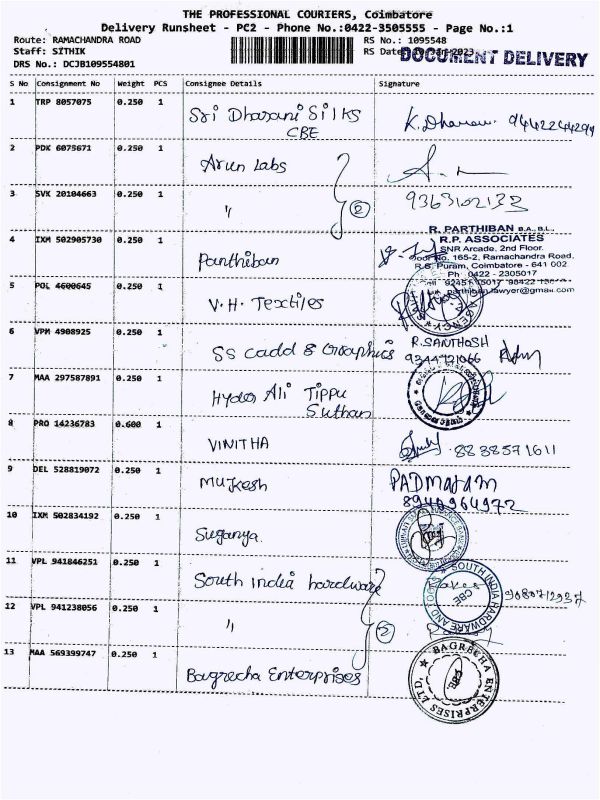 THE PROFESSIONAL COURIERS, Coimbatore
Delivery Runsheet - PC2 - Phone No.:0422-3505555 - Page No.:1
Route: RAMACHANDRA ROAD
RS No.: 1095548
Staff: SITHIK
RS Date:
DOCUMENT DELIVERY
DRS No.: DCJB109554801
S No Consignment No Weight PCS Consignee Details Signature
1 TRP 8057075 0.250 1 Sri Dharani Silks
CBE
2 PDK 6075671 0.250 1 Arun Labs
3 SVK 20104663 0.250 1 " 2
9363102133
R. PARTHIBAN B.A., B.L.,
R.P. ASSOCIATES
SNR Arcade, 2nd Floor,
Door No. 165-2, Ramachandra Road,
R.S. Puram, Coimbatore - 641 002
Ph : 0422 - 2305017
parthiban.lawyer@gmail.com
4 IXM 502905730 0.250 1 Parthiban
5 POL 4600645 0.250 1 V.H. Textiles
6 VPM 4908925 0.250 1 SS cadd & Graphics
R.SANTHOSH
7 MAA 297587891 0.250 1 Hyder Ali Tippu
Sulthan
8 PRO 14236783 0.600 1 VINITHA
8838571611
9 DEL 528819072 0.250 1 Mukesh
8940964972
10 IXM 502834192 0.250 1 Suganya
11 VPL 941846251 0.250 1 South india hardware
SOUTH INDIA HARDWARE AND TOOLS
CBE
12 VPL 941238056 0.250 1 " 2
13 MAA 569399747 0.250 1 Bagrecha Enterprises
BAGRECHA ENTERPRISES LTD.
CBE